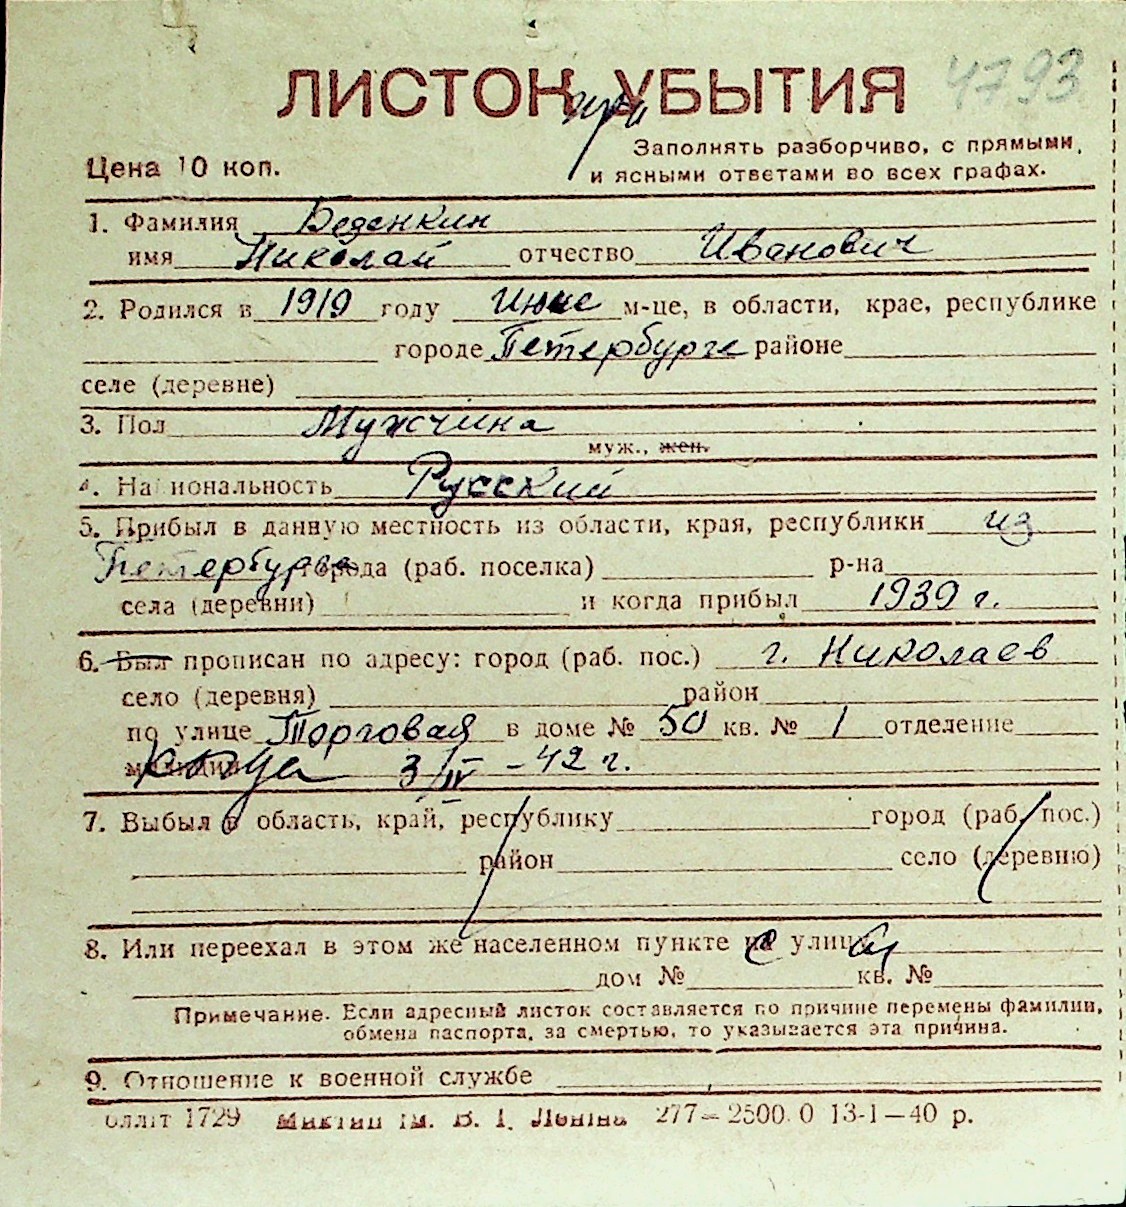 4793
ЛИСТОК УБЫТИЯ
при
Цена 10 коп.
Заполнять разборчиво, с прямыми,
и ясными ответами во всех графах.
1. Фамилия Беденкин
имя Николай отчество Иванович
2. Родился в 1919 году Июне м-це, в области, крае, республике
городе Петербурге районе
селе (деревне)
3. Пол Мужчина
муж., жен.
4. На иональность Русский
5. Прибыл в данную местность из области, края, республики из
Петербурга города (раб. поселка) р-на
села (деревни) и когда прибыл 1939 г.
6. Был прописан по адресу: город (раб. пос.) г. Николаев
село (деревня) район
по улице Торговая в доме № 50 кв. № 1 отделение
милиции 3/IV - 42 г.
7. Выбыл в область, край, республику город (раб. пос.)
район село (деревню)
8. Или переехал в этом же населенном пункте на улицу
дом № кв. №
Примечание. Если адресный листок составляется по причине перемены фамилии,
обмена паспорта, за смертью, то указывается эта причина.
9. Отношение к военной службе
1729 ім. В. І. Леніна 277—2500.0 13-1—40 р.